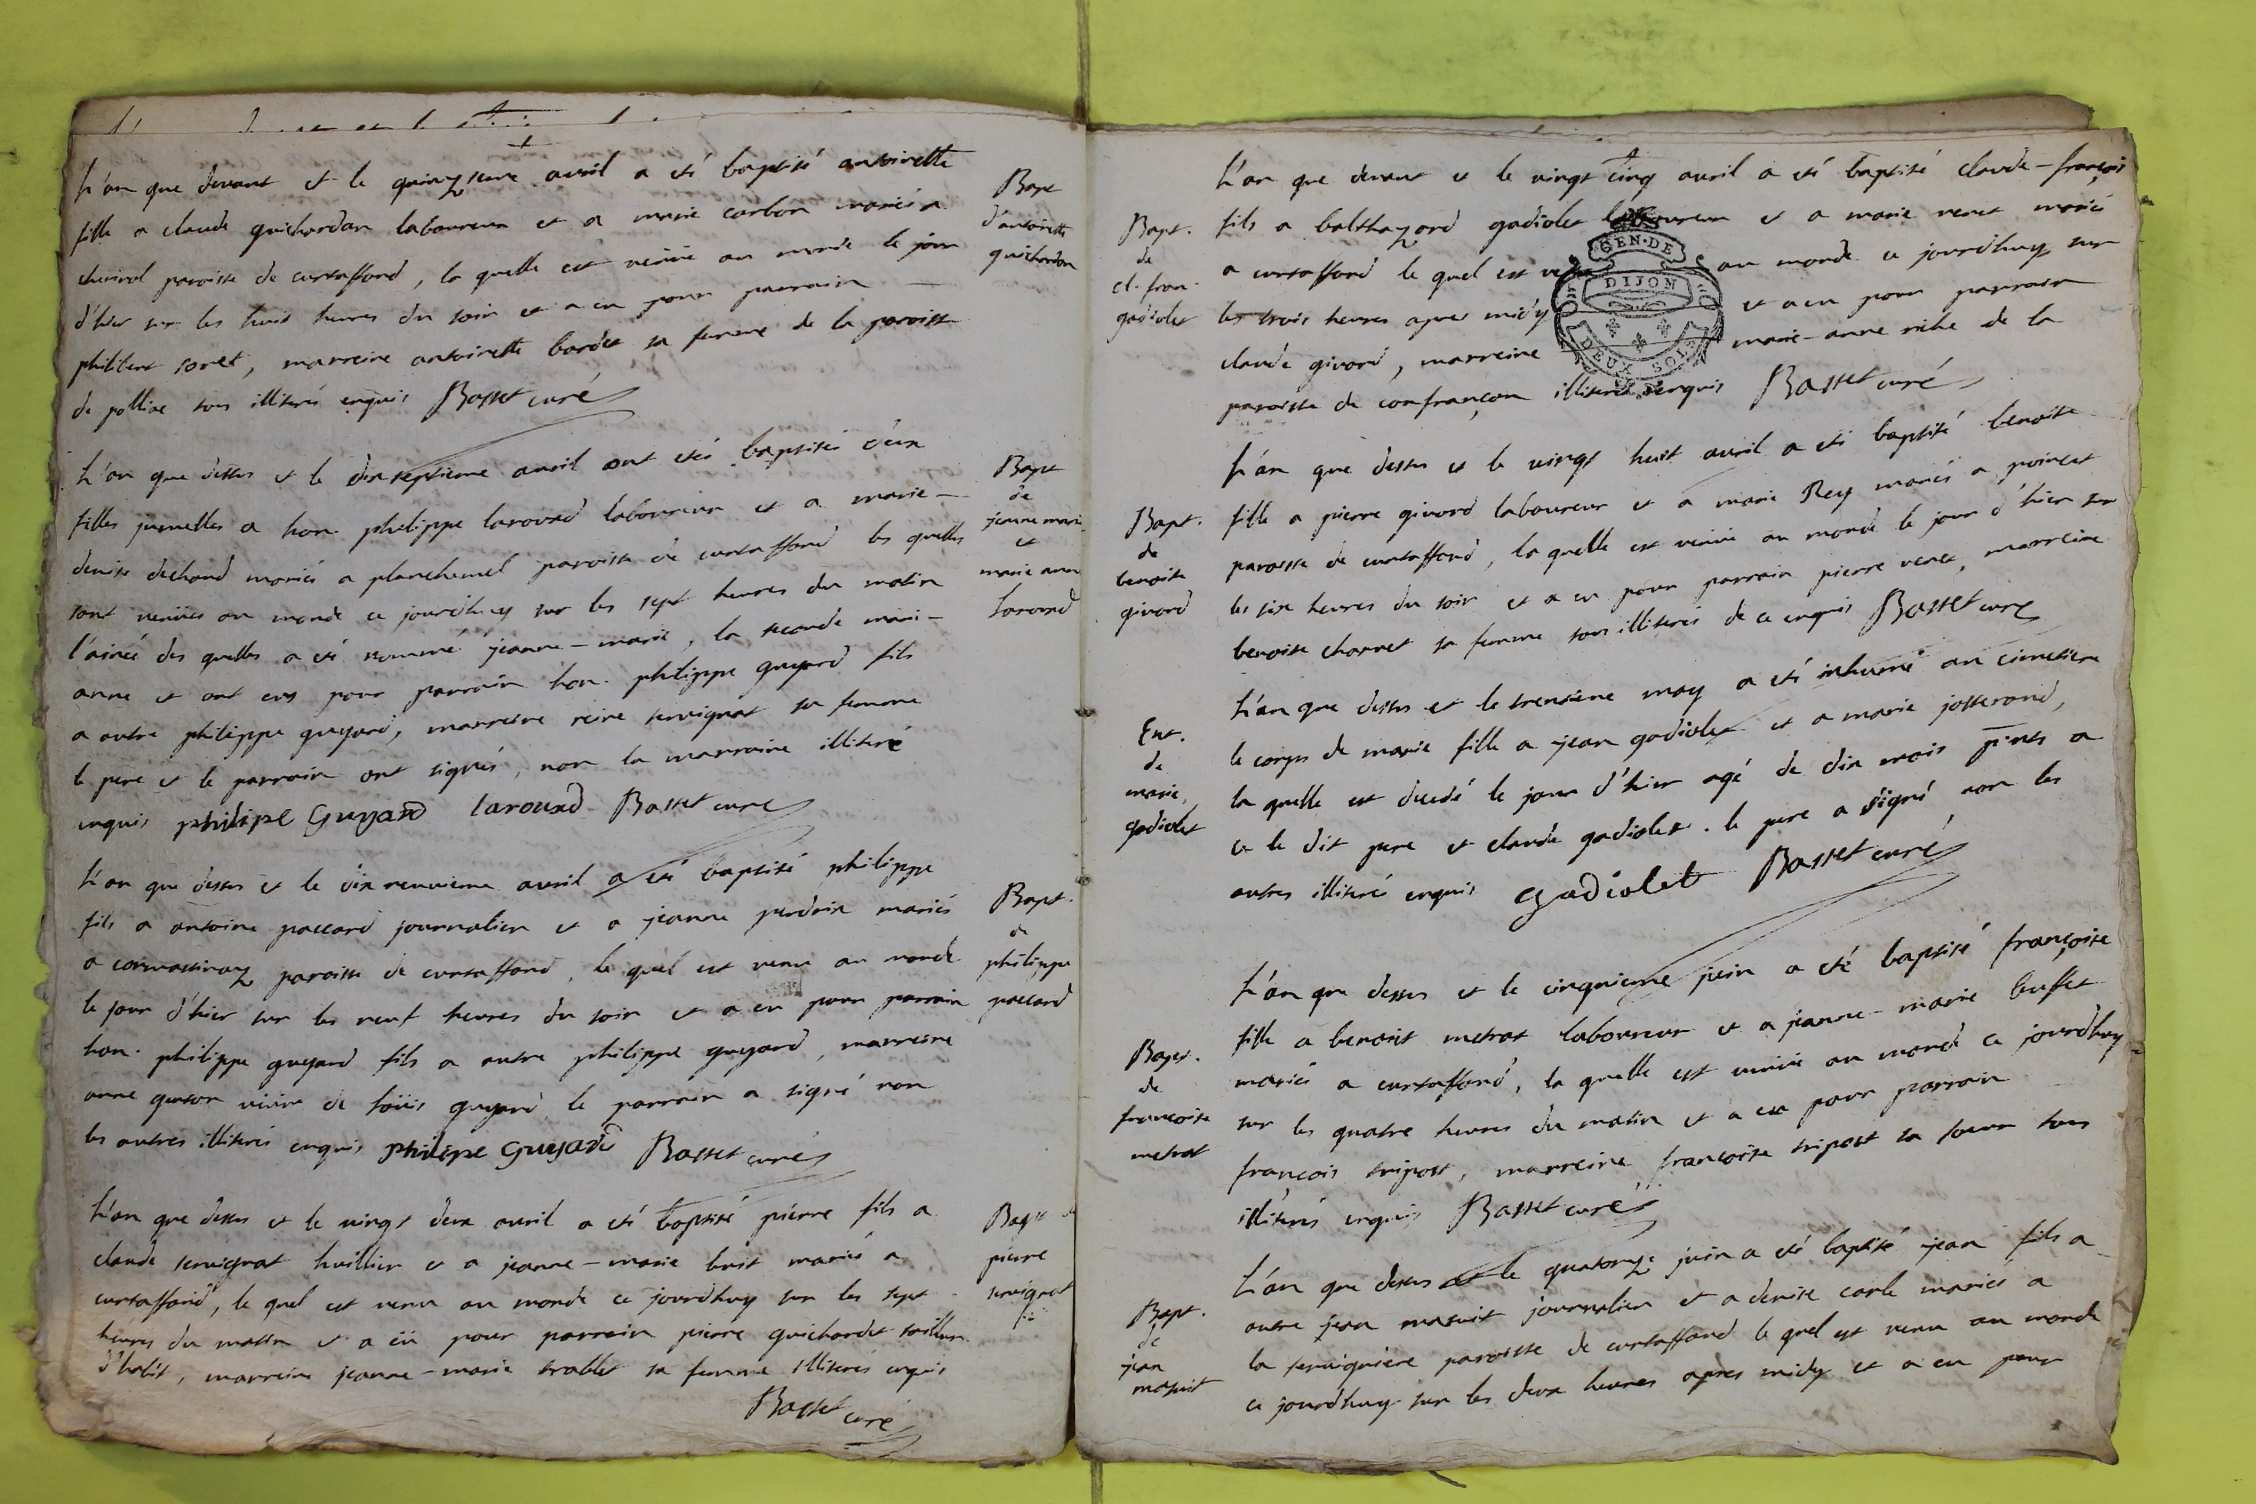 L'an que devant et le quinzieme avril a été baptisé antoinette
fille a claude guichardan laboureur et a marie carbon mariés a
chevirol paroisse de curtaffond, la quelle est venüe au monde le jour
d'hier sur les huit heures du soir et a eu pour parrain
philibert soret, marreine antoinette bardet sa femme de la paroisse
de polliae tous illiterés enquis Basset curé
Bapt
d'antoinette
guichardan
L'an que dessus et le dixseptieme avril ont étés baptisés deux
filles jumelles a hon. philippe larouad laboureur et a marie-
denise dechand mariés a planchemel paroisse de curtaffond les quelles
sont venües au monde ce jourd'huy sur les sept heures du matin
l'ainée des quelles a été nommé jeanne-marie, la seconde mari-
anne et ont eus pour parrain hon. philippe guyard fils
a autre philippe guyard, marreine reine servignat sa femme
le pere et le parrain ont signés, non la marraine illiteré
enquis philipe Guyard larouad Basset curé
Bapt
de
jeanne marie
et
marie anne
Larouad
L'an que dessus et le dix neuvieme avril a été baptisé philippe
fils a antoine paccard journalier et a jeanne perdrix mariés
a cormassinaz paroisse de curtaffond, le quel est venu au monde
le jour d'hier sur les neuf heures du soir et a eu pour parrain
hon. philippe guyard fils a autre philippe guyard, marreine
anne guson veüve de loüis guyard le parrain a signé non
les autres illiterés enquis philipe Guyard Basset curé
Bapt.
de
philippe
paccard
L'an que dessus et le vingt deux avril a été baptisé pierre fils a
claude servignat huillier et a jeanne-marie buit mariés a
curtaffond, le quel est venu au monde ce jourd'huy sur les sept
heures du matin et a eü pour parrain pierre guichardet tailleur
d'habit, marreine jeanne-marie trablet sa femme illiterés enquis
Basset curé
Bapt de
pierre
servignat
L'an que devant et le vingt cinq avril a été baptisé claude-françois
fils a balthazard gadiolet laboureur et a marie venet mariés
a curtaffond le quel est venu au monde ce jourd'huy sur
les trois heures apres midy et a eu pour parrain
claude givord, marreine marie-anne riche de la
paroisse de confrançon illiterés enquis Basset curé
GEN·DE
DIJON
DEUX SOLS
Bapt.
de
cl. fran.
gadiolet
L'an que dessus et le vingt huit avril a été baptisé benoite
fille a pierre givord laboureur et a marie Rey mariés a poincet
paroisse de curtaffond, la quelle est venüe au monde le jour d'hier sur
les six heures du soir et a eu pour parrain pierre venet, marreine
benoite charnet sa femme tous illiterés de ce enquis Basset curé
Bapt.
de
benoite
givord
L'an que dessus et le trentieme may a été inhumé au cimetiere
le corps de marie fille a jean gadiolet et a marie josserand,
la quelle est decedé le jour d'hier agé de dix mois p̄nts a
ce le dit pere et claude gadiolet. le pere a signé, non les
autres illiteré enquis Gadiolet Basset curé
Ent.
de
marie
gadiolet
L'an que dessus et le cinquieme juin a été baptisé françoise
fille a benoit metrat laboureur et a jeanne-marie buffet
mariés a curtaffond, la quelle est venüe au monde ce jourd'huy
sur les quatre heures du matin et a eu pour parrain
françois tripost, marreine françoise tripost sa soeur tous
illiterés enquis Basset curé
Bapt.
de
francoise
metrat
L'an que dessus et le quatorze juin a été baptisé jean fils a
autre jean masuit journalier et a denise carle mariés a
la servigniere paroisse de curtaffond le quel est venu au monde
ce jourd'huy sur les deux heures apres midy et a eu pour
Bapt.
de
jean
masuit